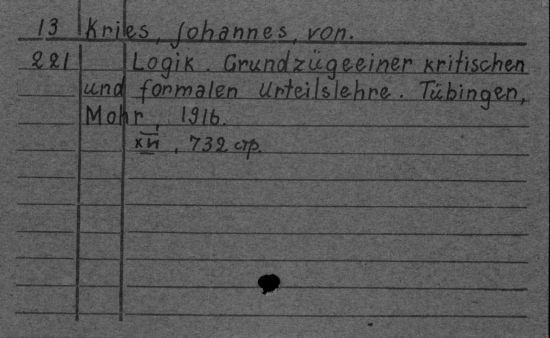 13 Kries, Johannes, von.
221 Logik. Grundzügeeiner kritischen
und formalen Urteilslehre. Tübingen,
Mohr, 1916.
732 стр.